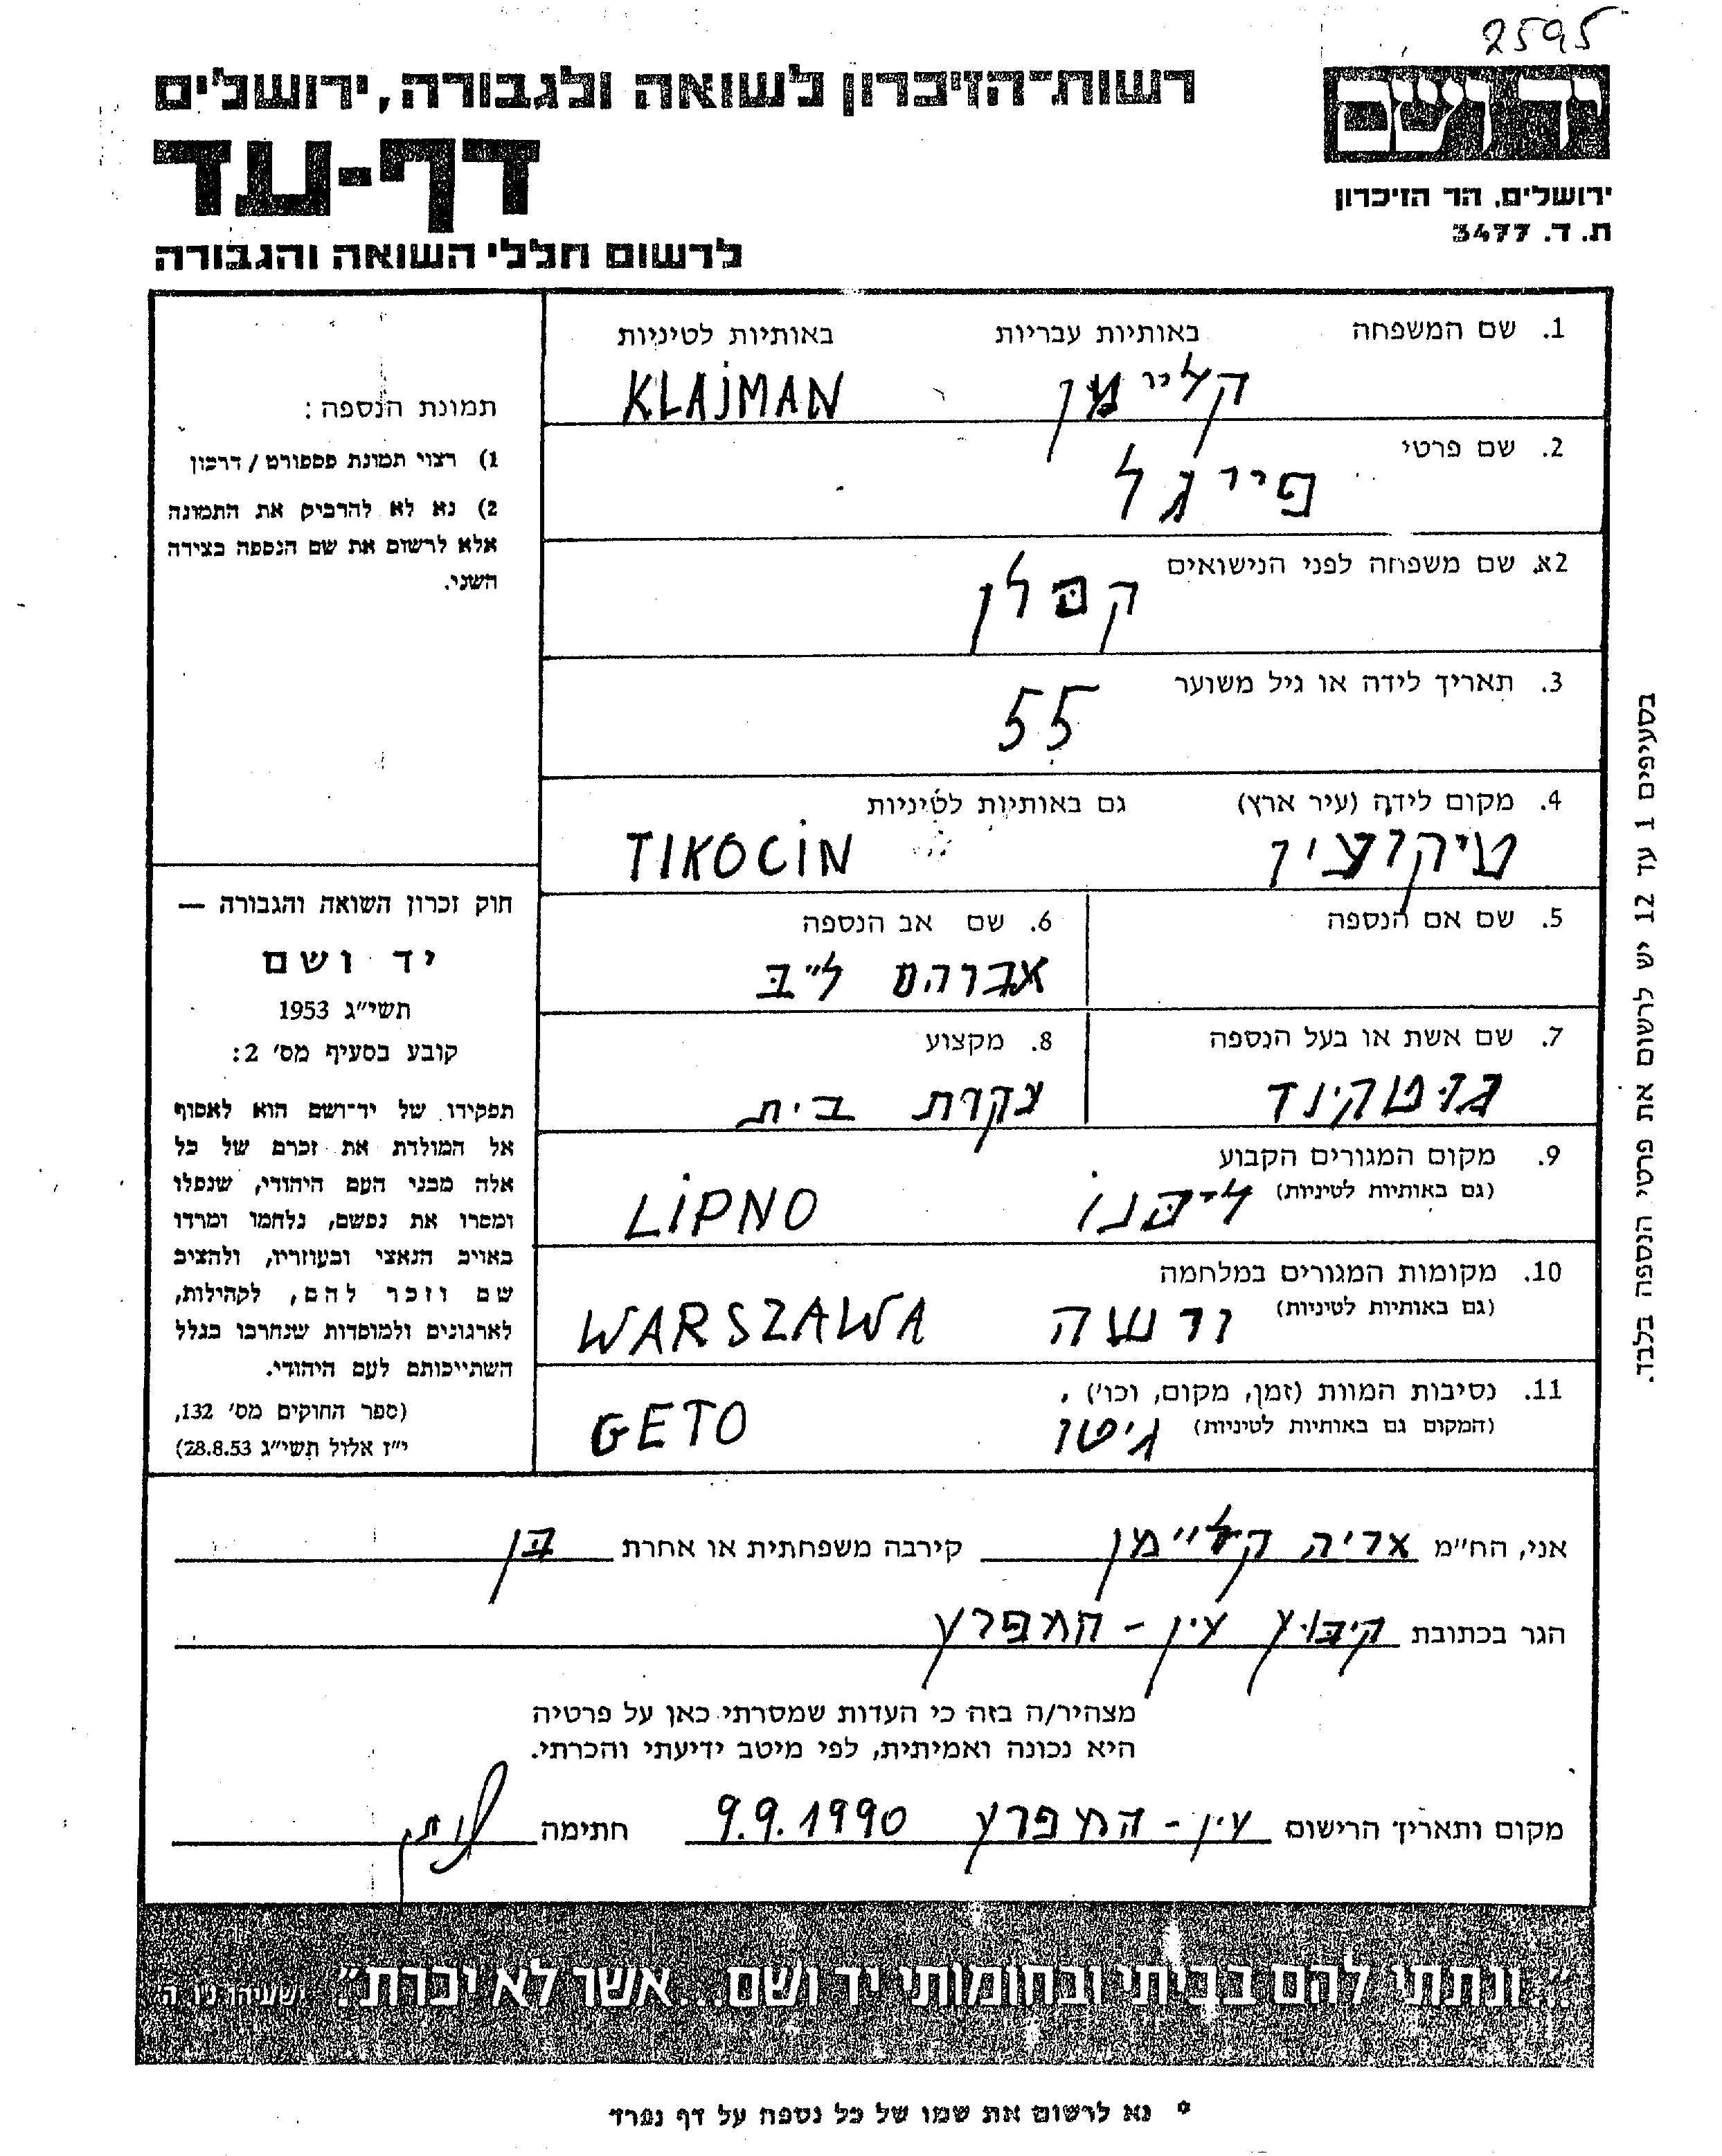 2595
יד ושם
ירושלים, הר הזיכרון
ת. ד. 3477
רשות־הזיכרון לשואה ולגבורה, ירושלים
דף-עד
לרשום חללי השואה והגבורה
1. שם המשפחה באותיות עבריות באותיות לטיניות
קליימן KLAJMAN
2. שם פרטי
פייגל
2א. שם משפחה לפני הנישואים
קפלן
3. תאריך לידה או גיל משוער
55
4. מקום לידה (עיר ארץ) גם באותיות לטיניות
טיקוצין TIKOCIN
5. שם אם הנספה
6. שם אב הנספה
אברהם ל״ב
7. שם אשת או בעל הנספה
גוטקינד
8. מקצוע
עקרת בית
9. מקום המגורים הקבוע
(גם באותיות לטיניות) ליפנו LIPNO
10. מקומות המגורים במלחמה
(גם באותיות לטיניות) ורשה WARSZAWA
11. נסיבות המוות (זמן, מקום, וכו')
(המקום גם באותיות לטיניות) גיטו GETO
תמונת הנספה:
1) רצוי תמונת פספורט / דרכון
2) נא לא להדביק את התמונה
אלא לרשום את שם הנספה בצידה
השני.
חוק זכרון השואה והגבורה —
יד ושם
תשי״ג 1953
קובע בסעיף מס' 2:
תפקידו של יד־ושם הוא לאסוף
אל המולדת את זכרם של כל
אלה מבני העם היהודי, שנפלו
ומסרו את נפשם, נלחמו ומרדו
באויב הנאצי ובעוזריו, ולהציב
שם וזכר להם, לקהילות,
לארגונים ולמוסדות שנחרבו בגלל
השתייכותם לעם היהודי.
(ספר החוקים מס' 132,
י״ז אלול תשי״ג 28.8.53)
בסעיפים 1 עד 12 יש לרשום את פרטי הנספה בלבד.
אני, הח״מ אריה קליימן קירבה משפחתית או אחרת בן
הגר בכתובת קיבוץ עין - המפרץ
מצהיר/ה בזה כי העדות שמסרתי כאן על פרטיה
היא נכונה ואמיתית, לפי מיטב ידיעתי והכרתי.
מקום ותאריך הרישום עין - המפרץ 9.9.1990 חתימה
״...ונתתי להם בביתי ובחומותי יד ושם...אשר לא יכרת״. ישעיהו נו ה
* נא לרשום את שמו של כל נספה על דף נפרד